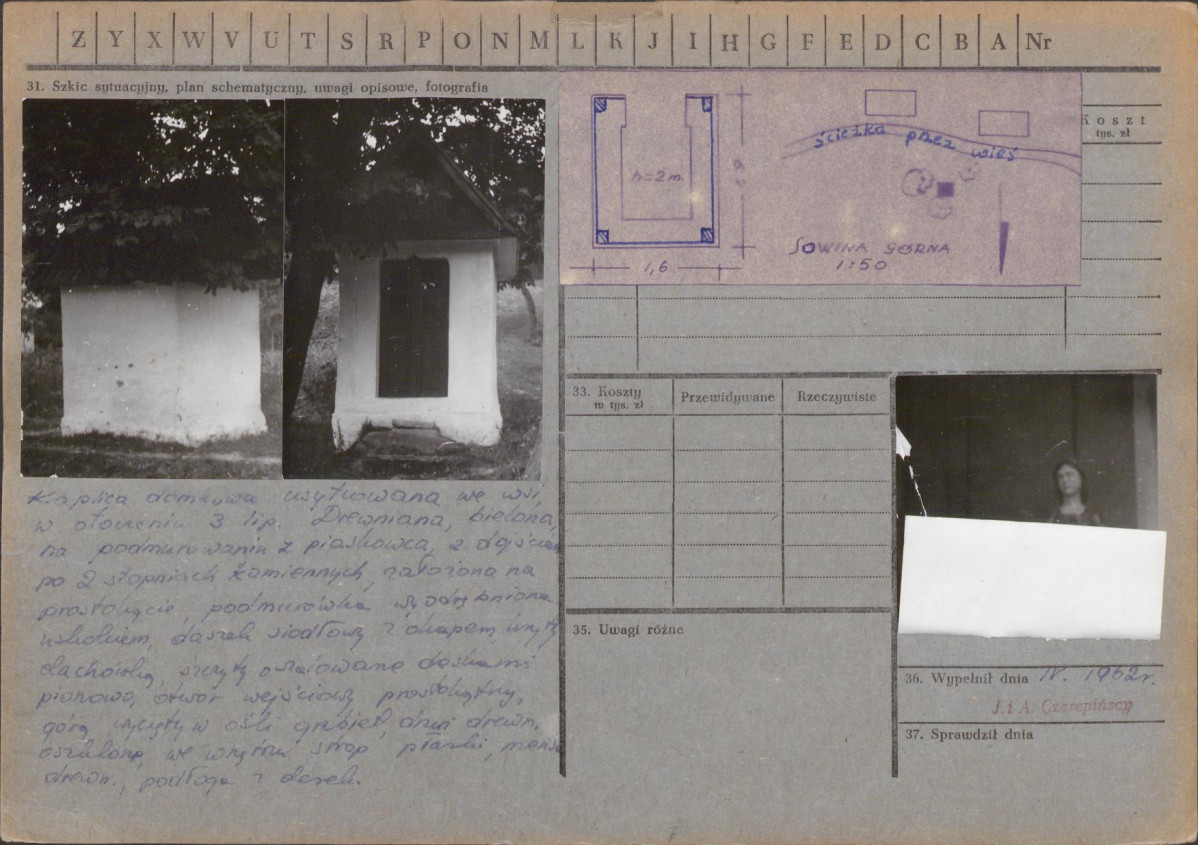 Z Y X W V U T S R P O N M L K J I H G F E D C B A Nr
31. Szkic sytuacyjny, plan schematyczny, uwagi opisowe, fotografia
Koszt
tys. zł
h=2m
1,6
ścieżka przez wieś
SOWINA GÓRNA
1:50
Kaplica domkowa usytuowana we wsi
w otoczeniu 3 lip. Drewniana, bielona,
na podmurowaniu z piaskowca, z dojściem
po 2 stopniach kamiennych, założona na
prostokącie, podmurówka wyodrębniona
uskokiem, daszek siodłowy z okapem kryty
dachówką, szczyty oszalowane deskami
pionowo, otwór wejściowy prostokątny,
górą wycięty w ośli grzbiet, drzwi drewn.
oszklone, we wnętrzu strop płaski, mensa
drewn., podłoga z desek.
33. Koszty
w tys. zł
Przewidywane
Rzeczywiste
35. Uwagi różne
36. Wypełnił dnia IV. 1962r.
J. i A. Czerepińscy
37. Sprawdził dnia